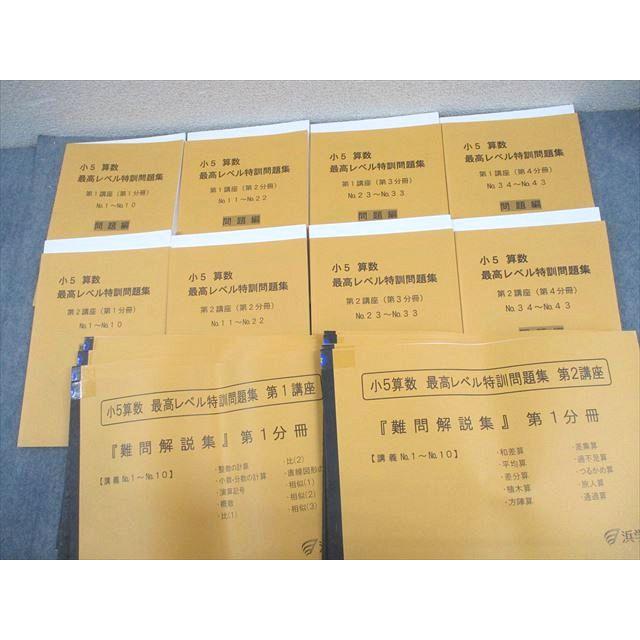 小5 算数
最高レベル特訓問題集
第1講座（第1分冊）
No.1～No.10
問題編
小5 算数
最高レベル特訓問題集
第1講座（第2分冊）
No.11～No.22
問題編
小5 算数
最高レベル特訓問題集
第1講座（第3分冊）
No.23～No.33
問題編
小5 算数
最高レベル特訓問題集
第1講座（第4分冊）
No.34～No.43
問題編
小5 算数
最高レベル特訓問題集
第2講座（第1分冊）
No.1～No.10
小5 算数
最高レベル特訓問題集
第2講座（第2分冊）
No.11～No.22
小5 算数
最高レベル特訓問題集
第2講座（第3分冊）
No.23～No.33
小5 算数
最高レベル特訓問題集
第2講座（第4分冊）
No.34～No.43
小5算数 最高レベル特訓問題集 第1講座
『難問解説集』 第1分冊
【講義No.1～No.10】
・整数の計算
・小数・分数の計算
・演算記号
・概数
・比(1)
・比(2)
・直線図形の
・相似(1)
・相似(2)
・相似(3)
小5算数 最高レベル特訓問題集 第2講座
『難問解説集』 第1分冊
【講義No.1～No.10】
・和差算
・平均算
・差分算
・積木算
・方陣算
・差集算
・過不足算
・つるかめ算
・旅人算
・通過算
浜学